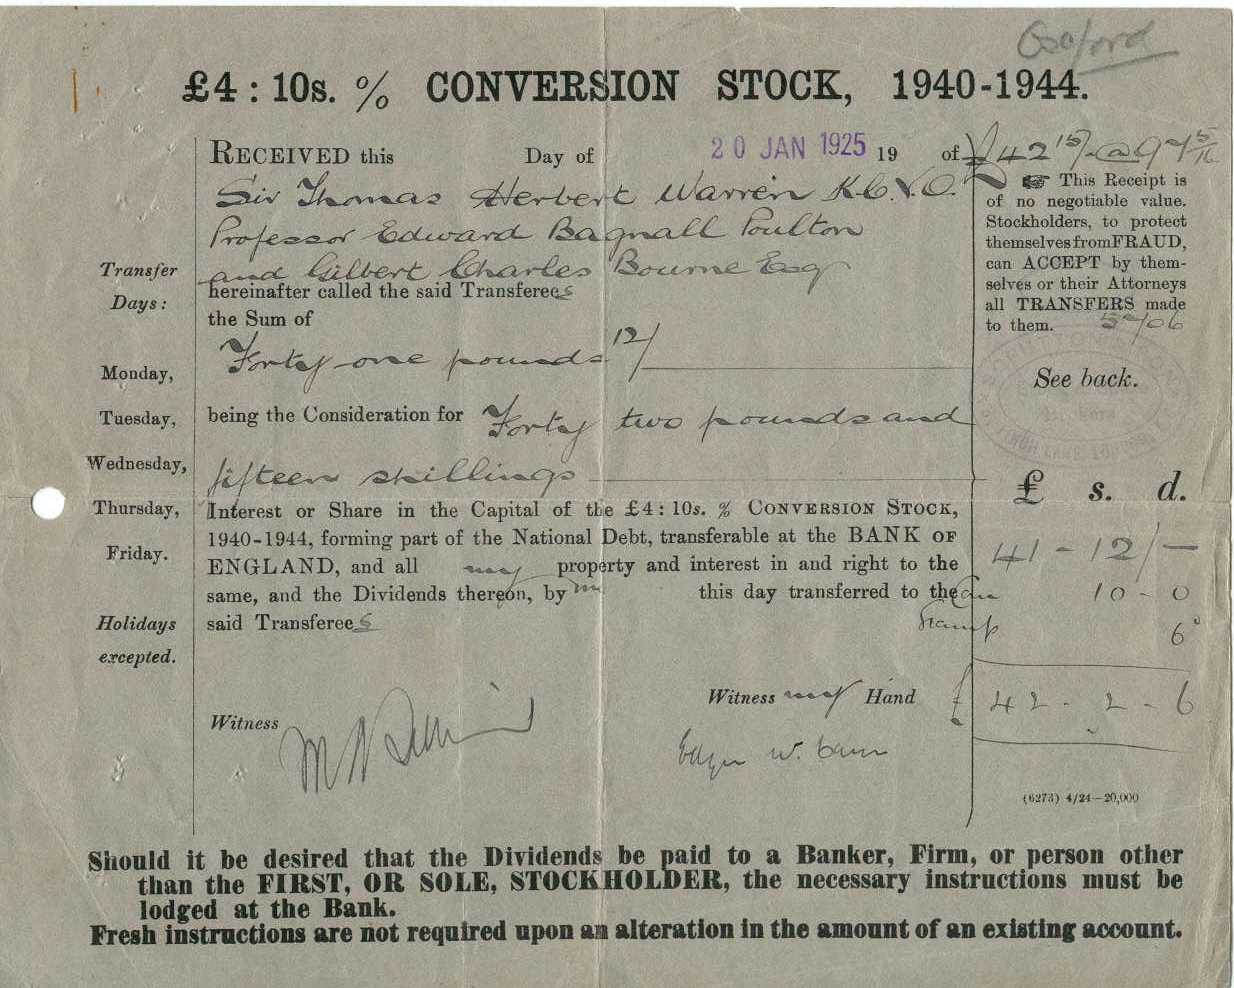 Oxford
£4 : 10s. % CONVERSION STOCK, 1940-1944.
RECEIVED this Day of 20 JAN 1925 19 of £42 15/- @ 97 5/16
Sir Thomas Herbert Warren K.C.V.O.
Professor Edward Bagnall Poulton
and Gilbert Charles Bourne Esq
hereinafter called the said Transferees
the Sum of
Forty one pounds 12/
being the Consideration for Forty two pounds and
fifteen shillings
Interest or Share in the Capital of the £4 : 10s. % CONVERSION STOCK,
1940-1944, forming part of the National Debt, transferable at the BANK OF
ENGLAND, and all my property and interest in and right to the
same, and the Dividends thereon, by me this day transferred to the
said Transferees
Witness
Witness my Hand
Transfer
Days :
Monday,
Tuesday,
Wednesday,
Thursday,
Friday.
Holidays
excepted.
☞ This Receipt is
of no negotiable value.
Stockholders, to protect
themselves from FRAUD,
can ACCEPT by them-
selves or their Attorneys
all TRANSFERS made
to them.
See back.
£ s. d.
41 - 12/ -
10 - 0
Stamp 6
£ 42 - 2 - 6
(6273) 4/24—20,000
Should it be desired that the Dividends be paid to a Banker, Firm, or person other
than the FIRST, OR SOLE, STOCKHOLDER, the necessary instructions must be
lodged at the Bank.
Fresh instructions are not required upon an alteration in the amount of an existing account.